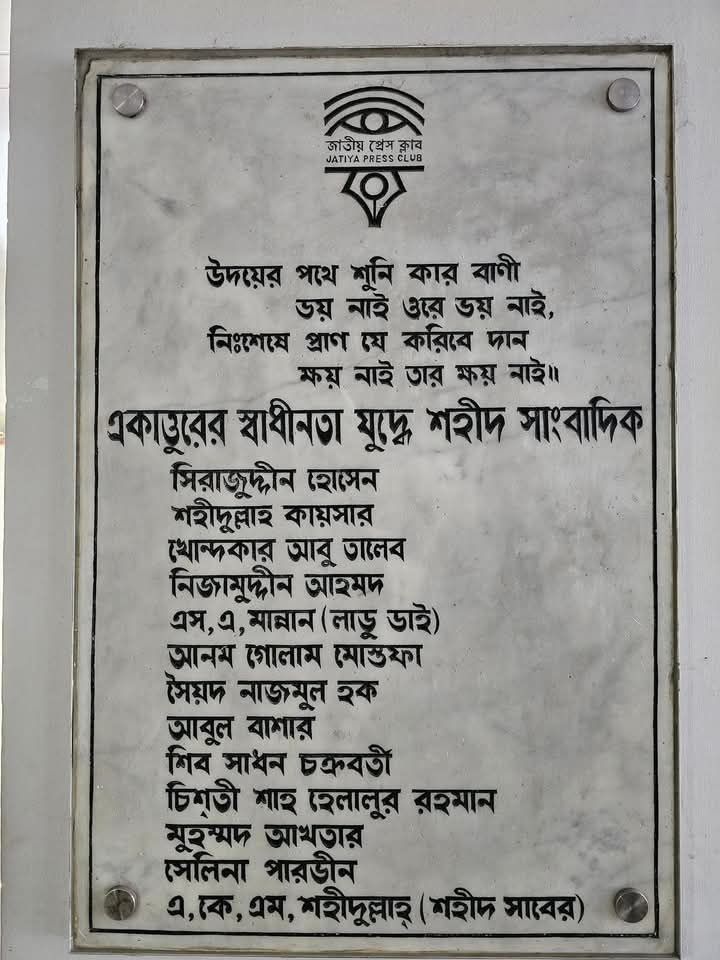 জাতীয় প্রেস ক্লাব
JATIYA PRESS CLUB
উদয়ের পথে শুনি কার বাণী
ভয় নাই ওরে ভয় নাই,
নিঃশেষে প্রাণ যে করিবে দান
ক্ষয় নাই তার ক্ষয় নাই॥
একাত্তুরের স্বাধীনতা যুদ্ধে শহীদ সাংবাদিক
সিরাজুদ্দীন হোসেন
শহীদুল্লাহ কায়সার
খোন্দকার আবু তালেব
নিজামুদ্দীন আহমদ
এস,এ,মান্নান (লাডু ভাই)
আনম গোলাম মোস্তফা
সৈয়দ নাজমুল হক
আবুল বাশার
শিব সাধন চক্রবর্তী
চিশ্‌তী শাহ হেলালুর রহমান
মুহম্মদ আখতার
সেলিনা পারভীন
এ,কে,এম,শহীদুল্লাহ্ (শহীদ সাবের)